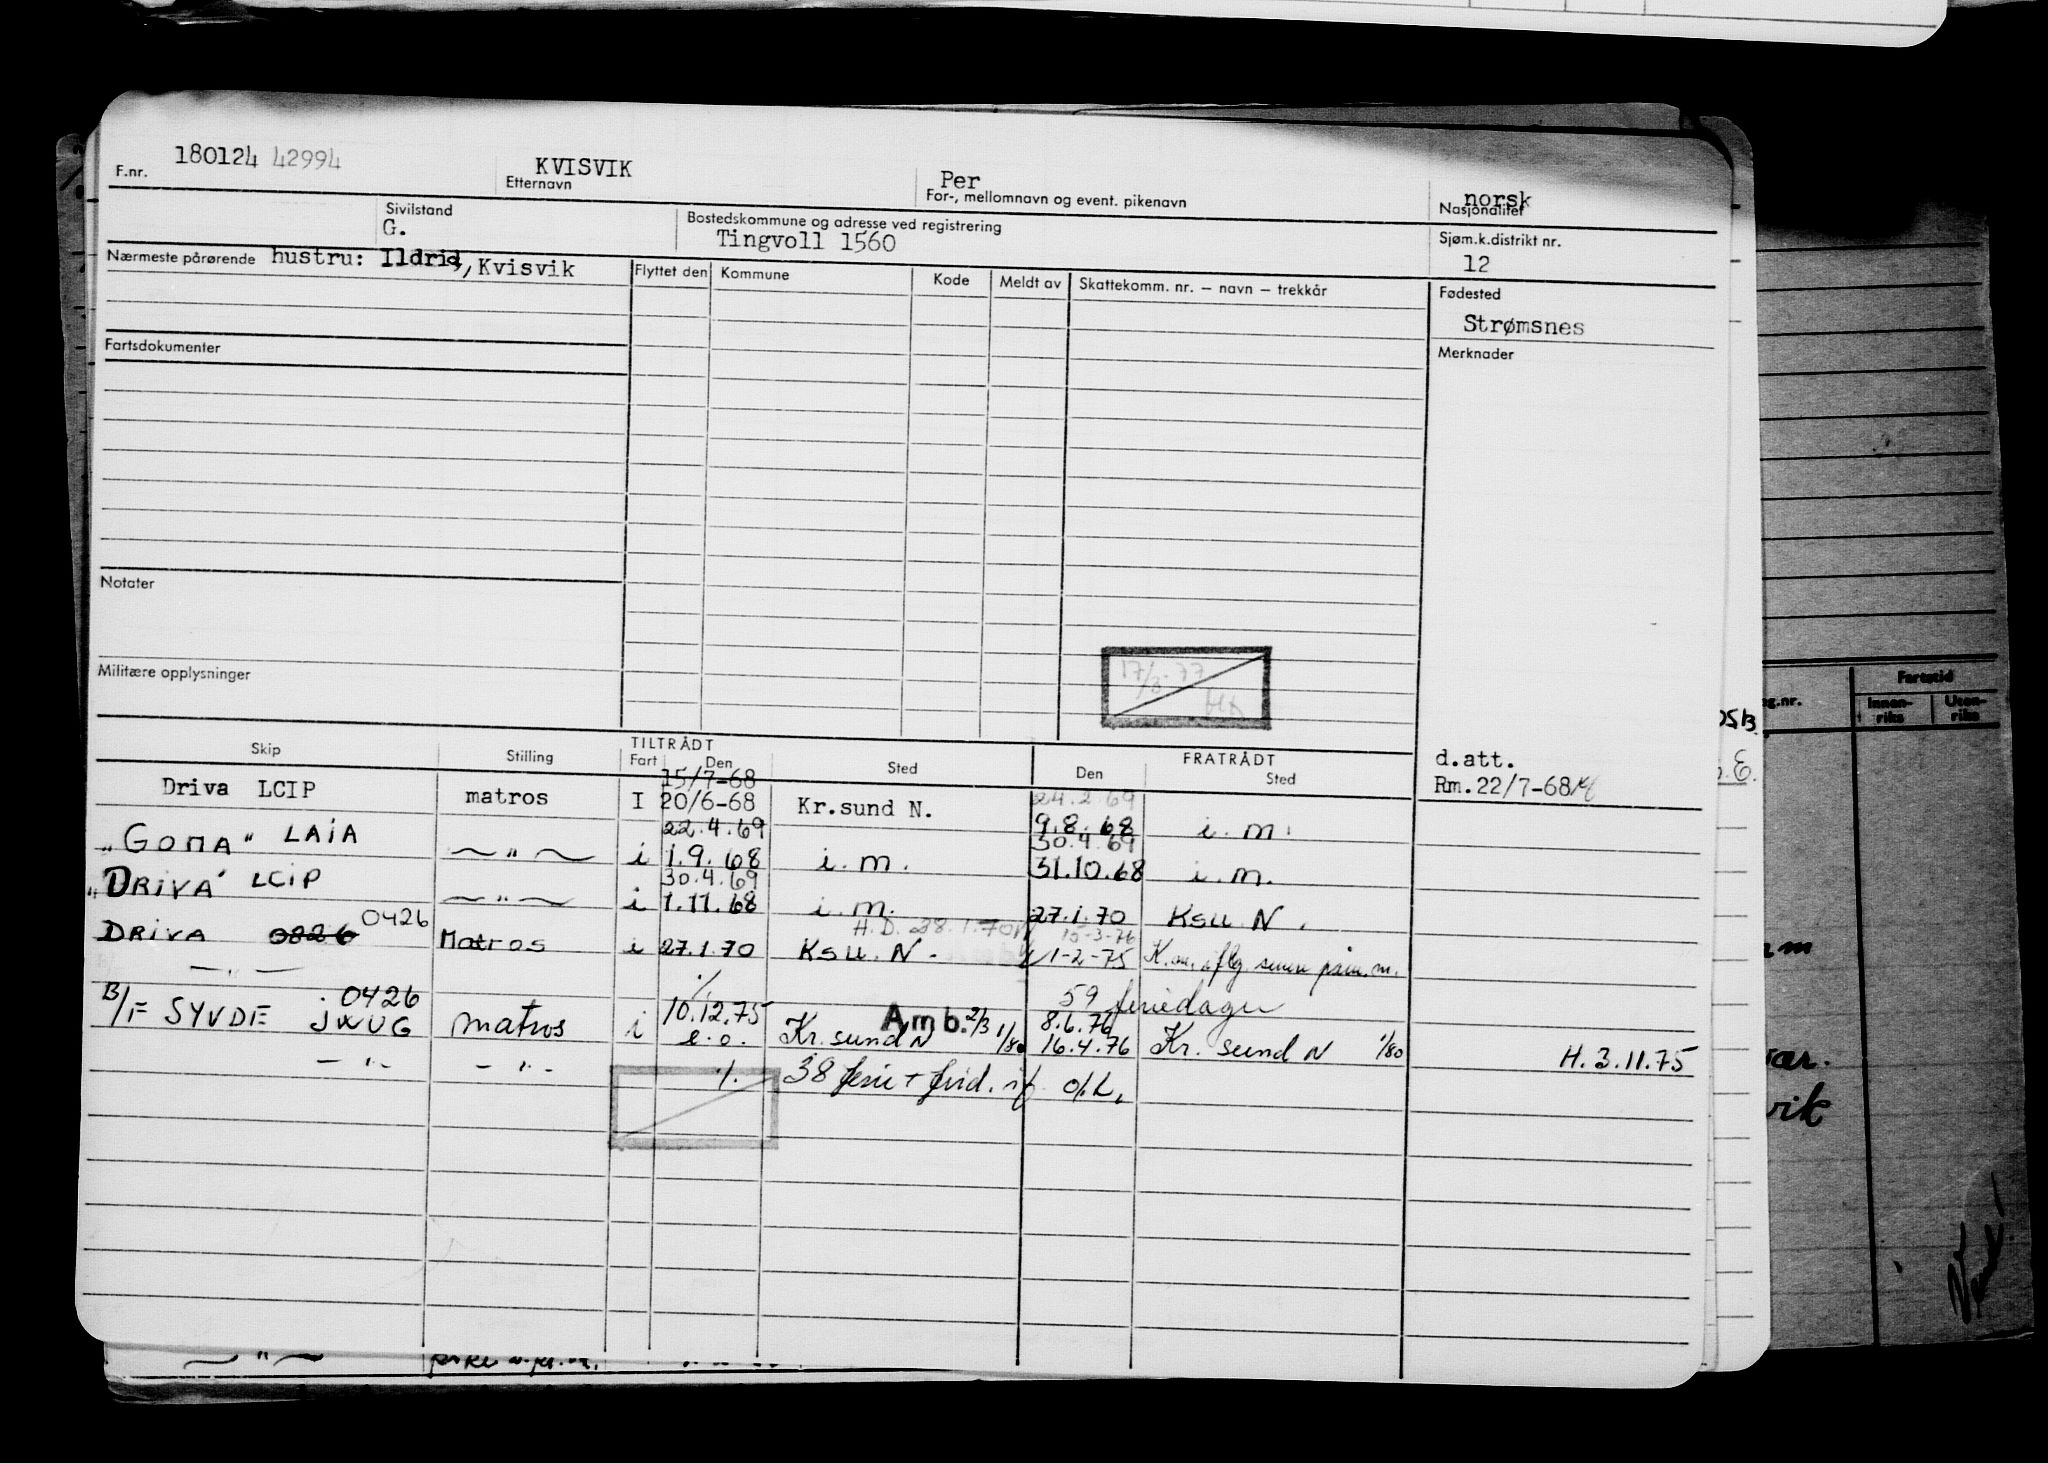 180124 42994 KVISVIK Per norsk
F.nr. Etternavn For-, mellomnavn og event. pikenavn Nasjonalitet
Sivilstand Bostedskommune og adresse ved registrering Sjøm.k.distrikt nr.
G. Tingvoll 1560 12
Nærmeste pårørende hustru: Ildrid, Kvisvik Flyttet den Kommune Kode Meldt av Skattekomm. nr. – navn – trekkår Fødested
Strømsnes
Fartsdokumenter Merknader
Notater
17/3-77
HK
Militære opplysninger
Skip Stilling TILTRÅDT FRATRÅDT
Fart Den Sted Den Sted d.att.
15/7-68 Rm.22/7-68
Driva LCIP matros I 20/6-68 Kr.sund N. 24.2.69
22.4.69 9.8.68 i.m.
"GOMA" LAIA — " — i 1.9.68 i.m. 30.4.69
31.10.68 i.m.
30.4.69
"DRIVA" LCIP — " — i 1.11.68 i.m. 27.1.70 KSU. N.
H.D. 28.1.70 15-3-76
DRIVA 0826 0426 Matros i 27.1.70 KSU. N. 1-2-75 K.
— " — 59 feriedager
B/F SYVDE 0426 JWUG matros i 10.12.75 Amb. 2/3 8.6.76
e.o. Kr.sund N 1/80 16.4.76 Kr. sund N 1/80 H. 3.11.75
— " — — " — ./. 38 ferie + frid. if. o/L.
Fartstid
Innen-
riks
Uten-
riks